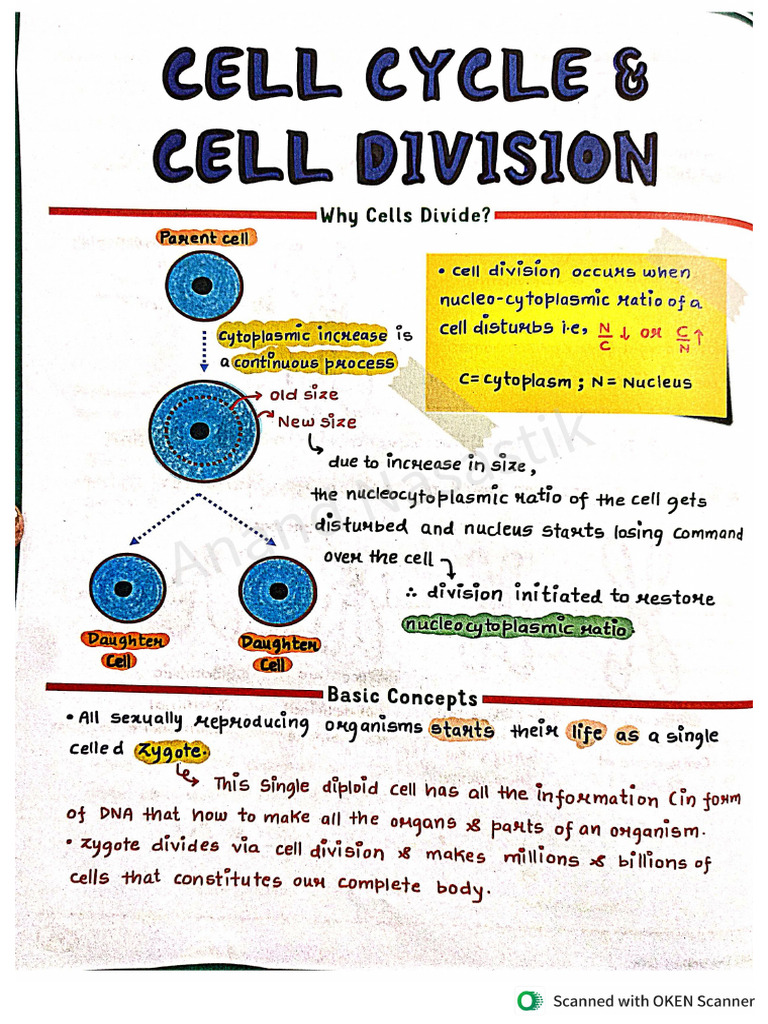 CELL CYCLE &
CELL DIVISION
Why Cells Divide?
Parent cell
• cell division occurs when
nucleo-cytoplasmic ratio of a
cell disturbs i.e, N/C ↓ or C/N ↑
C = cytoplasm ; N = Nucleus
cytoplasmic increase is
a continuous process
old size
New size
due to increase in size,
the nucleocytoplasmic ratio of the cell gets
disturbed and nucleus starts losing command
over the cell
∴ division initiated to restore
nucleocytoplasmic ratio.
Daughter
cell
Daughter
cell
Anand Nasastik
Basic Concepts
• All sexually reproducing organisms starts their life as a single
celled zygote.
This single diploid cell has all the information (in form
of DNA that how to make all the organs & parts of an organism.
• zygote divides via cell division & makes millions & billions of
cells that constitutes our complete body.
Scanned with OKEN Scanner